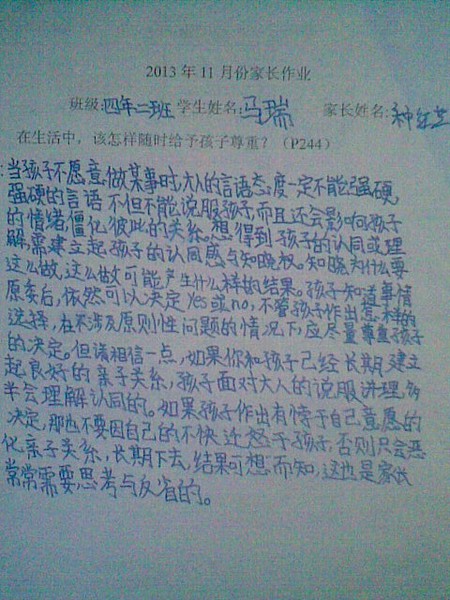 2013年11月份家长作业
班级:四年二班 学生姓名:马瑞 家长姓名:种红芝
在生活中，该怎样随时给予孩子尊重？（P244）
当孩子不愿意做某事时,大人的言语态度一定不能强硬,
强硬的言语不但不能说服孩子,而且还会影响孩子
的情绪,僵化彼此的关系。想得到孩子的认同或理
解,需建立起孩子的认同感与知晓权。知晓为什么要
这么做,这么做可能产生什么样的结果。孩子知道事情
原委后,依然可以决定yes或no,不管孩子作出怎样的
选择,在不涉及原则性问题的情况下,应尽量尊重孩子
的决定。但请相信一点,如果你和孩子已经长期建立
起良好的亲子关系,孩子面对大人的说服讲理,多
半会理解认同的。如果孩子作出有悖于自己意愿的
决定,那也不要因自己的不快迁怒于孩子,否则只会恶
化亲子关系,长期下去,结果可想而知,这也是家长
常常需要思考与反省的。